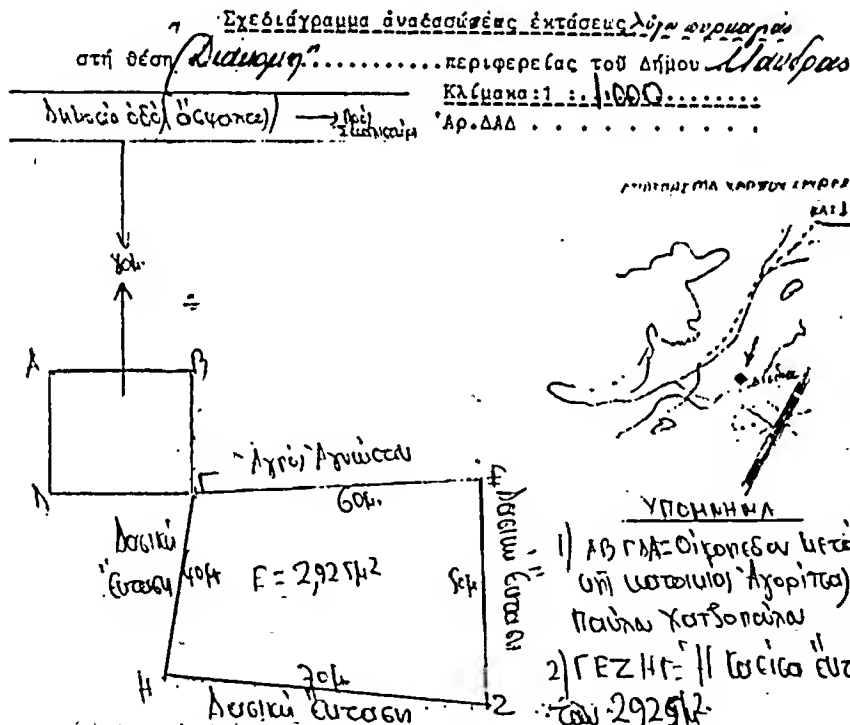 Σχεδιάγραμμα ἀναδασωτέας ἐκτάσεως λόγω πυρκαγιάς
στή θέση "Διάκομη" .......... περιφερείας τοῦ Δήμου Μάνδρας
Κλίμακα: 1 : 1.000 ........
Ἀρ. ΔΑΔ . . . . . . . . . .
Δημόσια ὁδός (ἄσφαλτος) → Πρός
Α Β
Δ Γ
Ἀγρός Ἀγνώστου
60μ. Ε
Δασική
ἔκταση
40μ
Ε = 2,925μ²
50μ
Δασική ἔκταση
Η 70μ. Ζ
Δασική ἔκταση
ΥΠΟΜΝΗΜΑ
1) ΑΒΓΔΑ = Οἰκόπεδον μετά
κατοικίας Ἀγορίτσας
Παύλου Χατζοπούλου
2) ΓΕΖΗΓ = Ἡ καεῖσα ἔκτ
τῶν 2925μ².